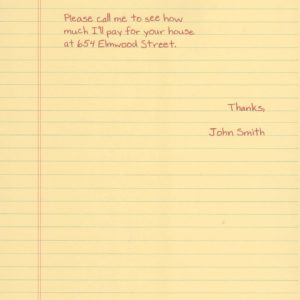 Please call me to see how
much I'll pay for your house
at 654 Elmwood Street.
Thanks,
John Smith